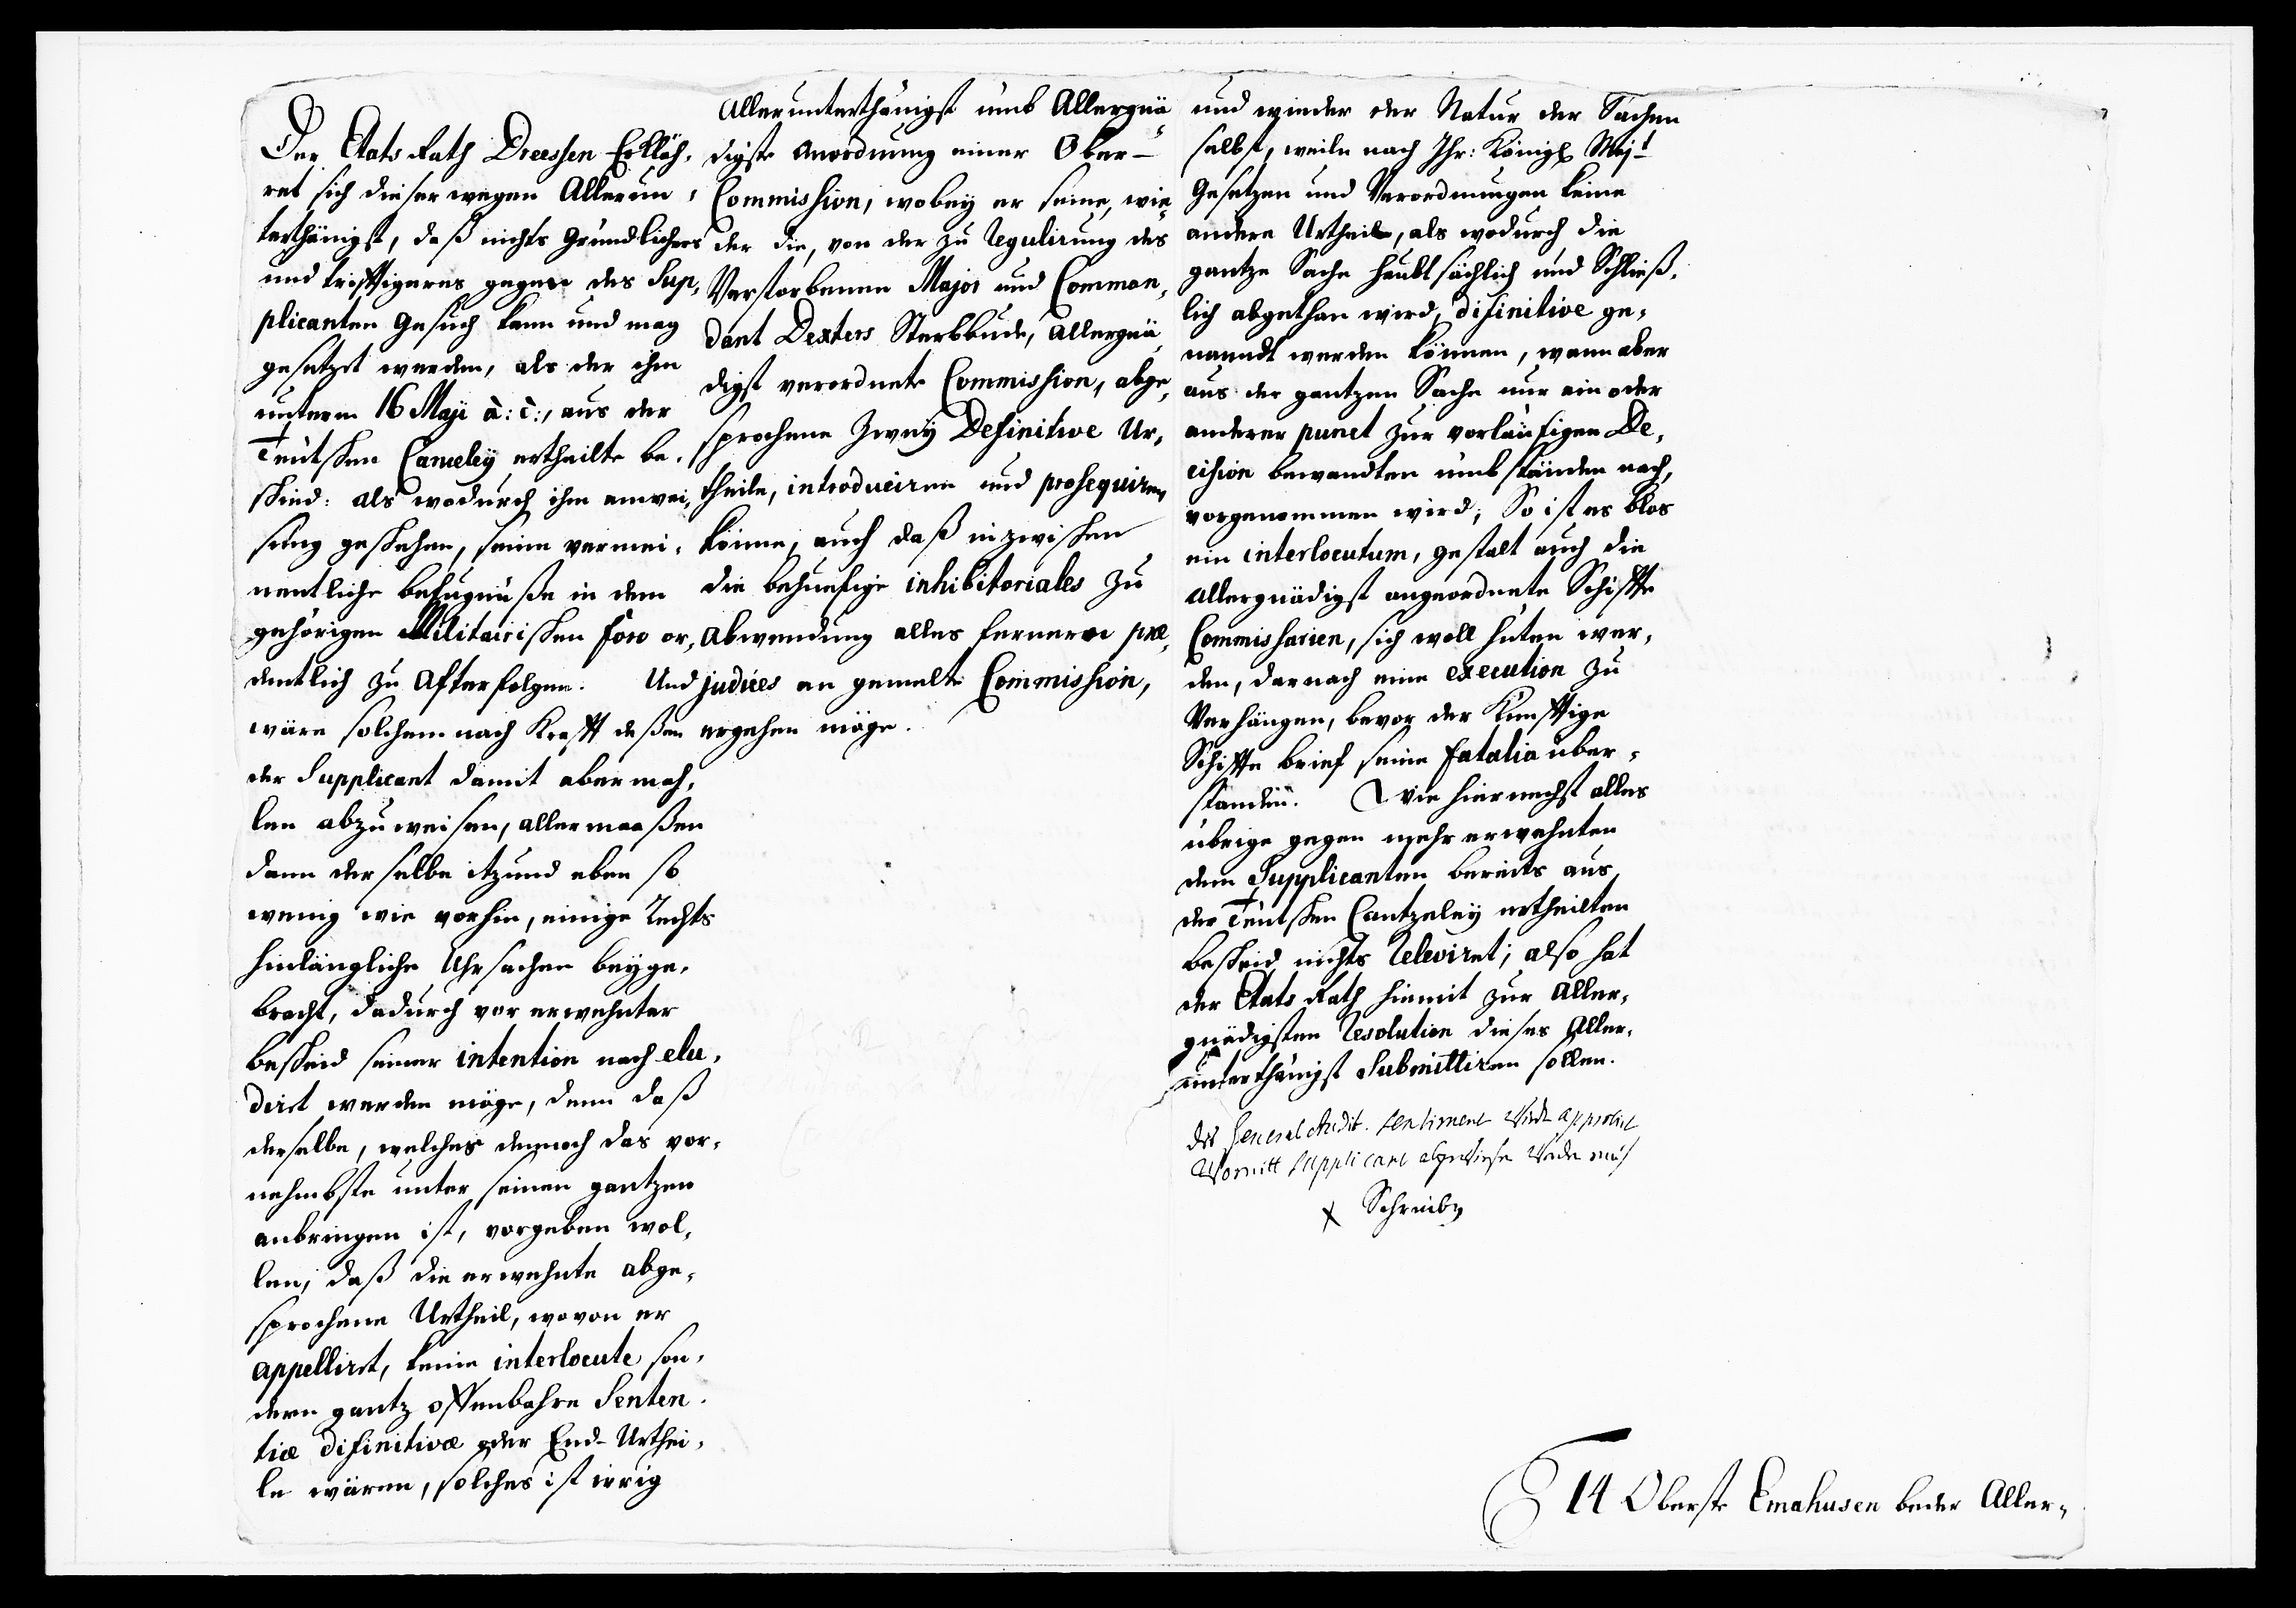 Der Etats Rath Dreessen Erkläh,
ret sich dieser wegen Allerun,
terthänigst, daß nichts Gründlichers
und trifftigeres gegen des Sup,
plicanten Gesuch kann und mag
gesetzet werden, als der ihm
unterm 16 Maji a: c:, aus der
Teutschen Canceley ertheilte be,
scheid: als wodurch ihm anwei,
sung geschehen, seine vermei,
nentliche befugnüße in dem
gehörigen Militairischen foro or,
dentlich zu Afterfolgen. Und
wäre solchem nach Krafft deßen
der Supplicant damit abermah,
len abzuweisen, allermaaßen
dann derselbe itzund eben so
wenig wie vorhin, einige Rechts
hinlängliche Uhrsachen beyge,
bracht, dadurch vor erwehnter
bescheid seiner intention nach elu,
diret werden möge, denn daß
derselbe, welches dennoch das vor,
nehmbste unter seinen gantzen
anbringen ist, vorgeben wol,
len, daß die erwehnte abge,
sprochene Urtheil, wovon er
appelliret, keine interlocute son,
dern gantz offenbahre Senten,
tiæ difinitivæ oder End-Urthei,
le wären, solches ist irrig
Allerunterthänigst umb Allergnä,
digste anordnung einer Ober-
Commission, wobey er seine, wie,
der die, von der zu Regulirung des
Verstorbenen Major und Comman,
dant Dexters Sterbbude, allergnä,
digst verordnete Commission, abge,
sprochene Zwey Definitive Ur,
theile, introduciren und prosequiren
könne, auch daß inzwischen
die behuefige inhibitoriales zu
Abwendung alles fernern præ,
judices an gemelte Commission,
ergehen möge.
und wieder der Natur der Sachen
selbst, weiln nach Ihr: Königl Majt
Gesetzen und Verordnungen keine
andere Urtheile, als wodurch die
gantze Sache haubtsächlich und Schließ,
lich abgethan wird, difinitive ge,
nanndt werden können, wann aber
aus der gantzen Sache nur ein oder
anderer punct zur vorläufigen De,
cision bewandten umbständen nach,
vorgenommen wird; So ist es blos
ein interlocutum, gestalt auch die
allergnädigst angeordnete Schiffte
Commissarien, sich woll hüten wer,
den, darnach eine execution zu
Verhängen, bevor der Künfftige
Schiffte brief seine fatalia über,
standen. Wie hiernechst alles
übrige gegen mehr erwehnten
dem Supplicanten bereits aus
der Teutschen Cantzeley ertheilten
bescheid nichts Releviret; also hat
der Etats Rath hiemit zur Aller,
gnädigsten Resolution dieses Aller,
unterthänigst Submittiren sollen.
des General Audit. sentiment wirdt approbirt
Womitt supplicant abgewiesen werden muß
x Schreiben
14 Oberste Emahusen beder Aller,